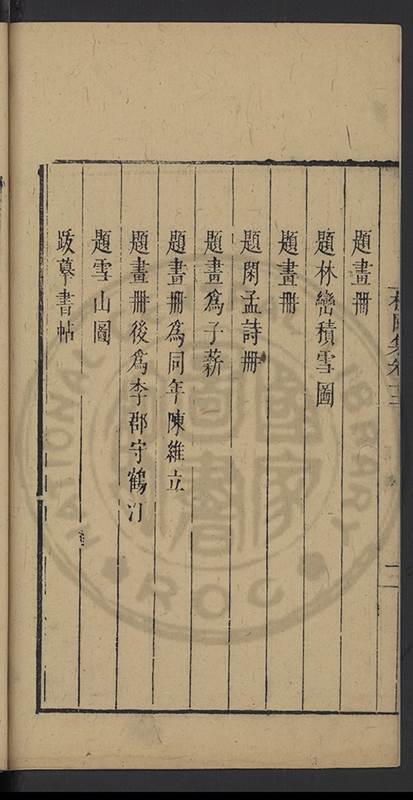 題畫冊
題林巒積雪圖
題畫冊
題閑孟詩冊
題畫為子薪
題畫冊為同年陳維立
題畫冊後為李郡守鶴汀
題雪山圖
跋摹書帖
二